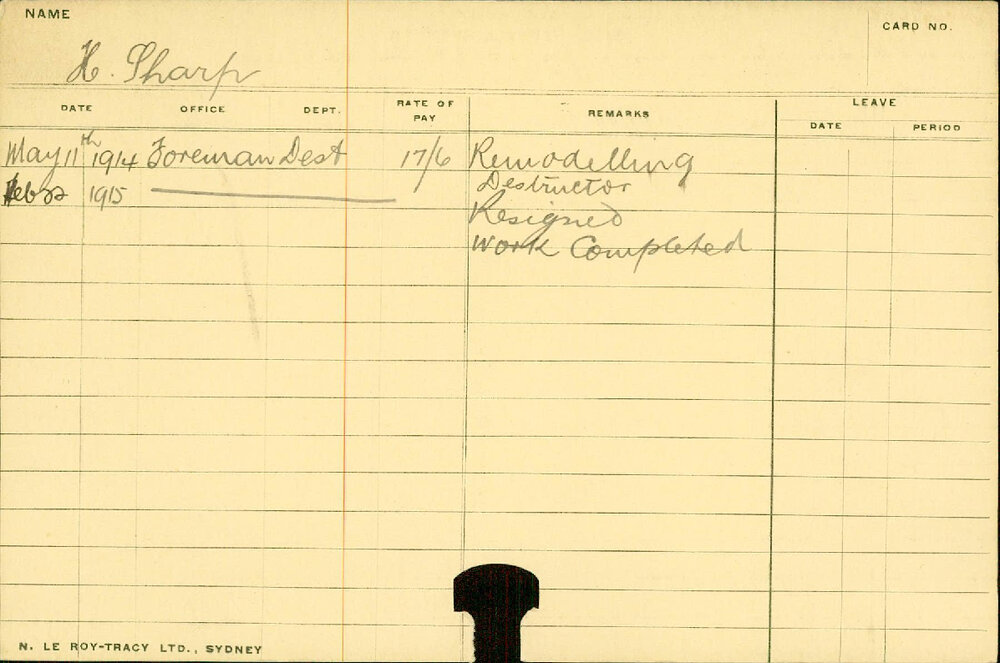 NAME
CARD NO.
H. Sharp
DATE OFFICE DEPT. RATE OF PAY REMARKS LEAVE
DATE PERIOD
May 11th 1914 Foreman Dest 17/6 Remodelling
Destructor
Feb 1915
Resigned
Work Completed
N. LE ROY-TRACY LTD., SYDNEY